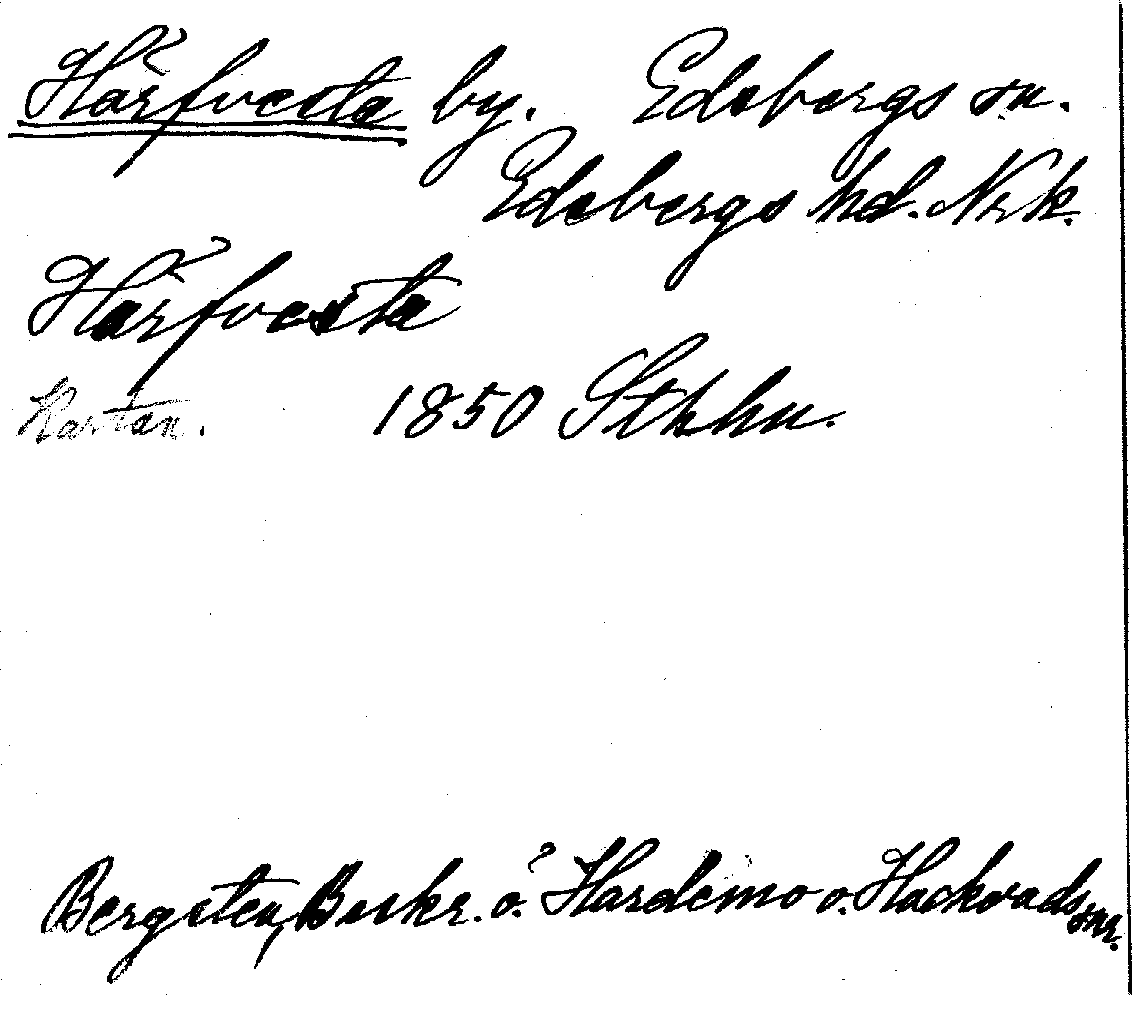 Hårfvesta by. Edsbergs sn.
Edsbergs hd. Nrk.
Hårfvesta
Kartan. 1850 Sthhn.
Bergsten, Beskr. ö. Hardemo o. Hackvads snr.